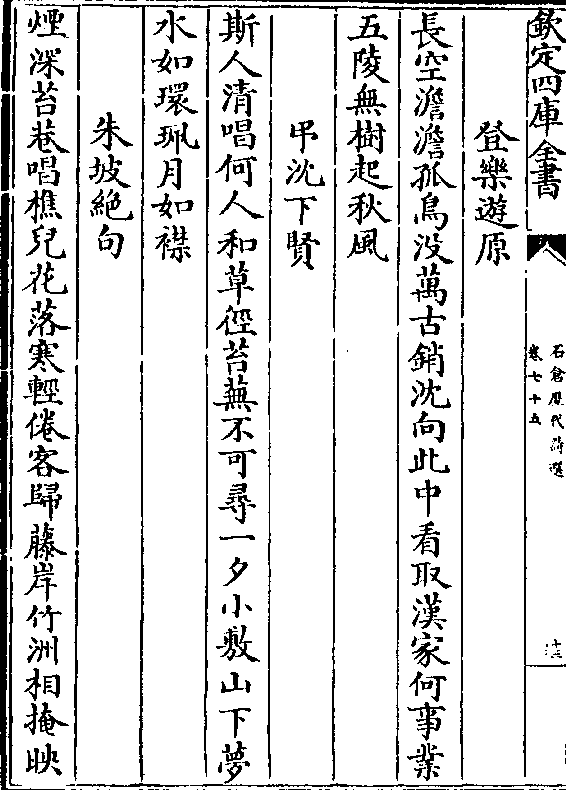 欽定四庫全書
石倉歴代詩選
卷七十五
十三
登樂遊原
長空澹澹孤鳥没萬古銷沈向此中看取漢家何事業
五陵無樹起秋風
弔沈下賢
斯人清唱何人和草徑苔蕪不可尋一夕小敷山下夢
水如環珮月如襟
朱坡絶句
煙深苔巷唱樵兒花落寒輕倦客歸藤岸竹洲相掩映